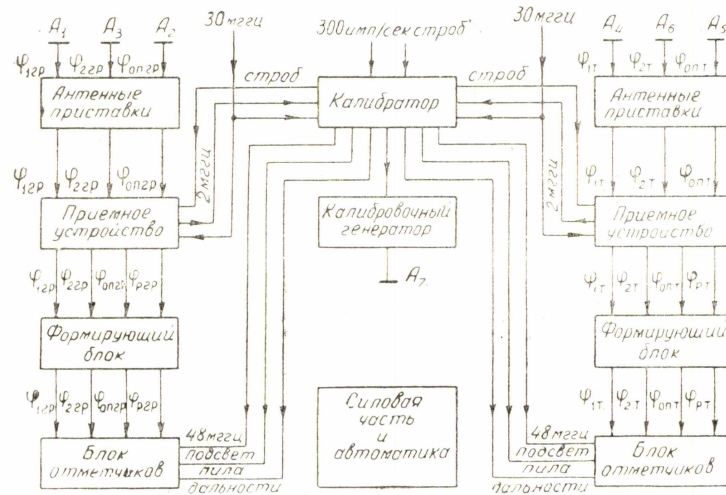 30 мггц 30 мггц
A₁ A₃ A₂ 300 имп/сек строб A₄ A₆ A₅
φ₁гр φ₂гр φопгр строб строб φ₁т φ₂т φопт
Антенные приставки
Калибратор
Антенные приставки
φ₁гр φ₂гр φопгр 2 мггц 2 мггц φ₁т φ₂т φопт
Приемное устройство
Калибровочный генератор
Приемное устройство
A₇
φ₁гр φ₂гр φопгр φргр φ₁т φ₂т φопт φрт
Формирующий блок
Формирующий блок
φ₁гр φ₂гр φопгр φргр φ₁т. φ₂т φопт φрт
Силовая часть и автоматика
Блок отметчиков
48 мггц
подсвет
пила
дальности
48 мггц
подсвет
пила
дальности
Блок отметчиков